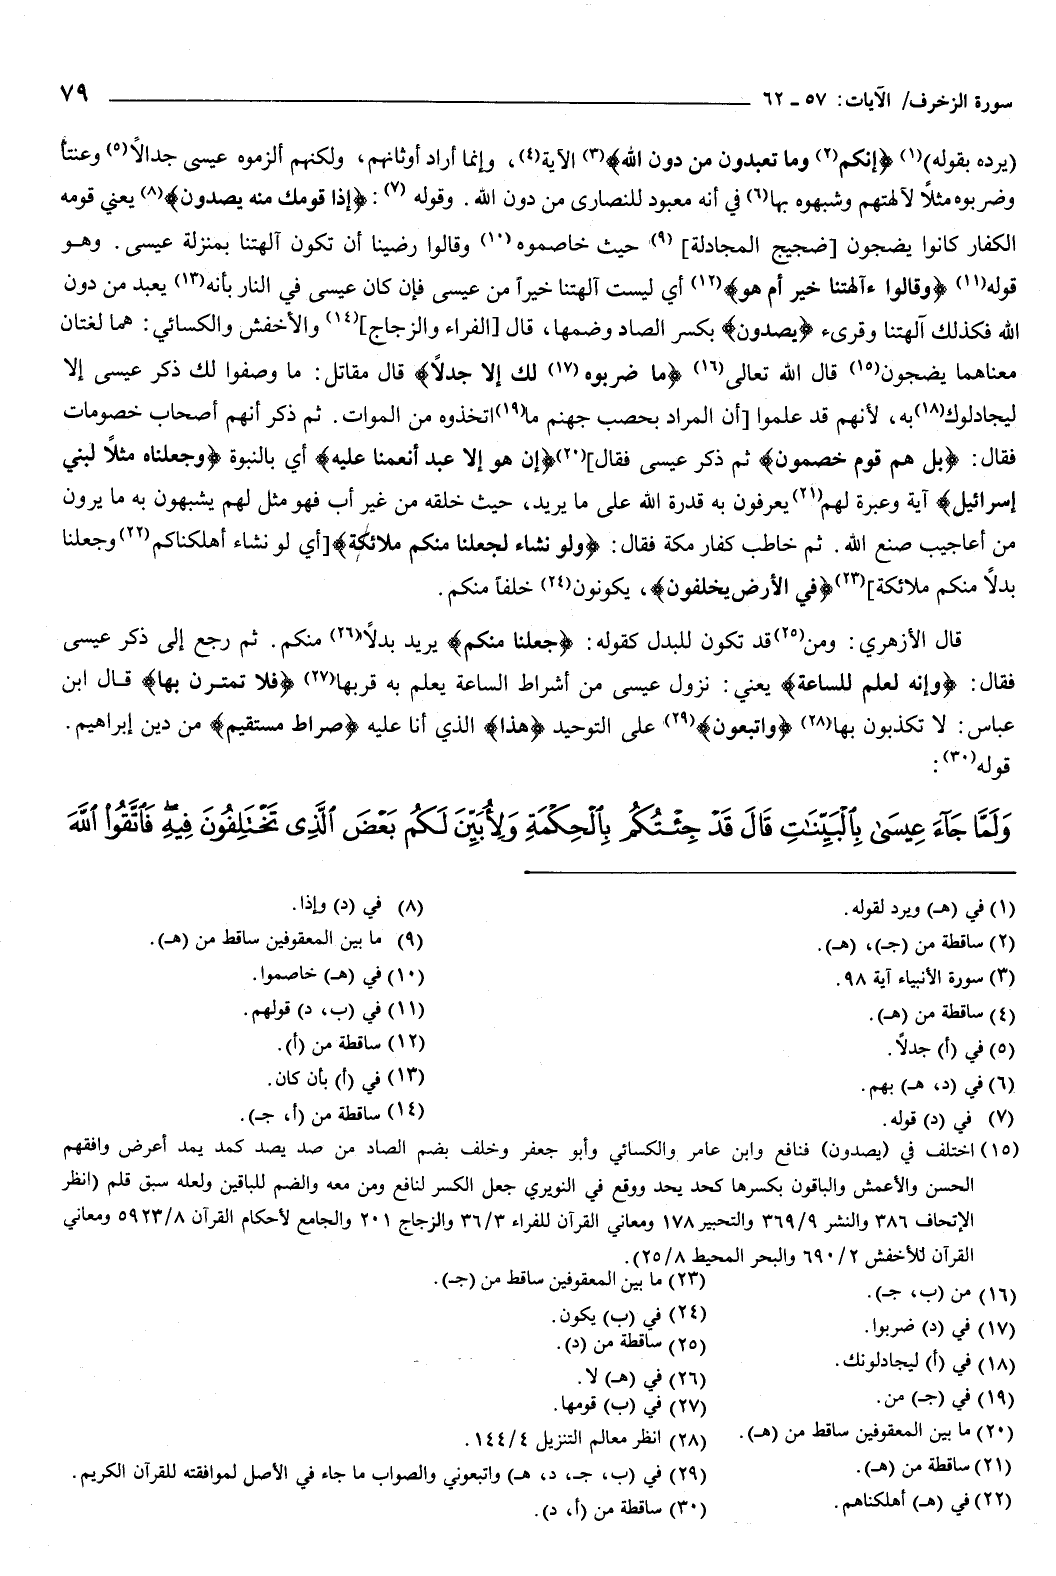 سورة الزخرف/ الآيات: ٥٧ ـ ٦٢ ٧٩
(يرده بقوله)(١) ﴿إنكم(٢) وما تعبدون من دون الله﴾(٣) الآية(٤)، وإنما أراد أوثانهم، ولكنهم ألزموه عيسى جدالاً(٥) وعنتاً
وضربوه مثلاً لآلهتهم وشبهوه بها(٦) في أنه معبود للنصارى من دون الله. وقوله (٧): ﴿إذا قومك منه يصدون﴾(٨) يعني قومه
الكفار كانوا يضجون [ضجيج المجادلة] (٩) حيث خاصموه(١٠) وقالوا رضينا أن تكون آلهتنا بمنزلة عيسى. وهـو
قوله(١١) ﴿وقالوا ءآلهتنا خير أم هو﴾(١٢) أي ليست آلهتنا خيراً من عيسى فإن كان عيسى في النار بأنه(١٣) يعبد من دون
الله فكذلك آلهتنا وقرىء ﴿يصدون﴾ بكسر الصاد وضمها، قال [الفراء والزجاج](١٤) والأخفش والكسائي: هما لغتان
معناهما يضجون(١٥) قال الله تعالى(١٦) ﴿ما ضربوه (١٧) لك إلا جدلاً﴾ قال مقاتل: ما وصفوا لك ذكر عيسى إلا
ليجادلوك(١٨)به، لأنهم قد علموا [أن المراد بحصب جهنم ما(١٩)اتخذوه من الموات. ثم ذكر أنهم أصحاب خصومات
فقال: ﴿بل هم قوم خصمون﴾ ثم ذكر عيسى فقال](٢٠)﴿إن هو إلا عبد أنعمنا عليه﴾ أي بالنبوة ﴿وجعلناه مثلاً لبني
إسرائيل﴾ آية وعبرة لهم(٢١)يعرفون به قدرة الله على ما يريد، حيث خلقه من غير أب فهو مثل لهم يشبهون به ما يرون
من أعاجيب صنع الله. ثم خاطب كفار مكة فقال: ﴿ولو نشاء لجعلنا منكم ملائكة﴾[أي لو نشاء أهلكناكم(٢٢)وجعلنا
بدلاً منكم ملائكة](٢٣)﴿في الأرض يخلفون﴾، يكونون(٢٤) خلفاً منكم.
قال الأزهري: ومن(٢٥)قد تكون للبدل كقوله: ﴿جعلنا منكم﴾ يريد بدلاً(٢٦) منكم. ثم رجع إلى ذكر عيسى
فقال: ﴿وإنه لعلم للساعة﴾ يعني: نزول عيسى من أشراط الساعة يعلم به قربها(٢٧) ﴿فلا تمتـرن بها﴾ قـال ابن
عباس: لا تكذبون بها(٢٨) ﴿واتبعون﴾(٢٩) على التوحيد ﴿هذا﴾ الذي أنا عليه ﴿صراط مستقيم﴾ من دين إبراهيم.
قوله(٣٠):
وَلَمَّا جَآءَ عِيسَىٰ بِٱلْبَيِّنَـٰتِ قَالَ قَدْ جِئْتُكُم بِٱلْحِكْمَةِ وَلِأُبَيِّنَ لَكُم بَعْضَ ٱلَّذِى تَخْتَلِفُونَ فِيهِ ۖ فَٱتَّقُوا۟ ٱللَّهَ
(١) في (هـ) ويرد لقوله.
(٢) ساقطة من (جـ)، (هـ).
(٣) سورة الأنبياء آية ٩٨.
(٤) ساقطة من (هـ).
(٥) في (أ) جدلاً.
(٦) في (د، هـ) بهم.
(٧) في (د) قوله.
(٨) في (د) وإذا.
(٩) ما بين المعقوفين ساقط من (هـ).
(١٠) في (هـ) خاصموا.
(١١) في (ب، د) قولهم.
(١٢) ساقطة من (أ).
(١٣) في (أ) بأن كان.
(١٤) ساقطة من (أ، جـ).
(١٥) اختلف في (يصدون) فنافع وابن عامر والكسائي وأبو جعفر وخلف بضم الصاد من صد يصد كمد يمد أعرض وافقهم
الحسن والأعمش والباقون بكسرها كحد يحد ووقع في النويري جعل الكسر لنافع ومن معه والضم للباقين ولعله سبق قلم (انظر
الإتحاف ٣٨٦ والنشر ٣٦٩/٩ والتحبير ١٧٨ ومعاني القرآن للفراء ٣٦/٣ والزجاج ٢٠١ والجامع لأحكام القرآن ٥٩٢٣/٨ ومعاني
القرآن للأخفش ٦٩٠/٢ والبحر المحيط ٢٥/٨).
(١٦) من (ب، جـ).
(١٧) في (د) ضربوا.
(١٨) في (أ) ليجادلونك.
(١٩) في (جـ) من.
(٢٠) ما بين المعقوفين ساقط من (هـ).
(٢١) ساقطة من (هـ).
(٢٢) في (هـ) أهلكناهم.
(٢٣) ما بين المعقوفين ساقط من (جـ).
(٢٤) في (ب) يكون.
(٢٥) ساقطة من (د).
(٢٦) في (هـ) لا.
(٢٧) في (ب) قومها.
(٢٨) انظر معالم التنزيل ١٤٤/٤.
(٢٩) في (ب، جـ، د، هـ) واتبعوني والصواب ما جاء في الأصل لموافقته للقرآن الكريم.
(٣٠) ساقطة من (أ، د).